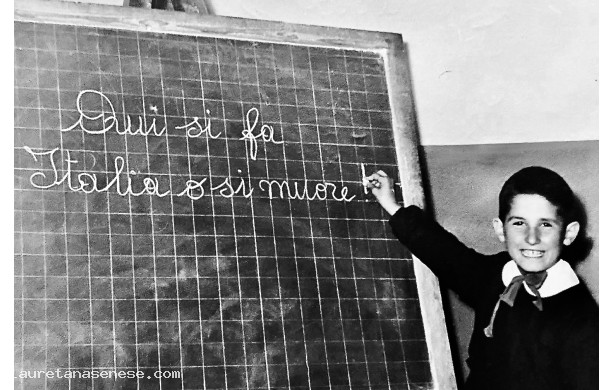 Qui si fa
Italia o si muore.
lauretanasenese.com